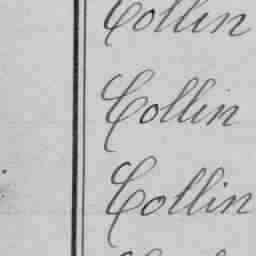 Collin
Collin
Collin